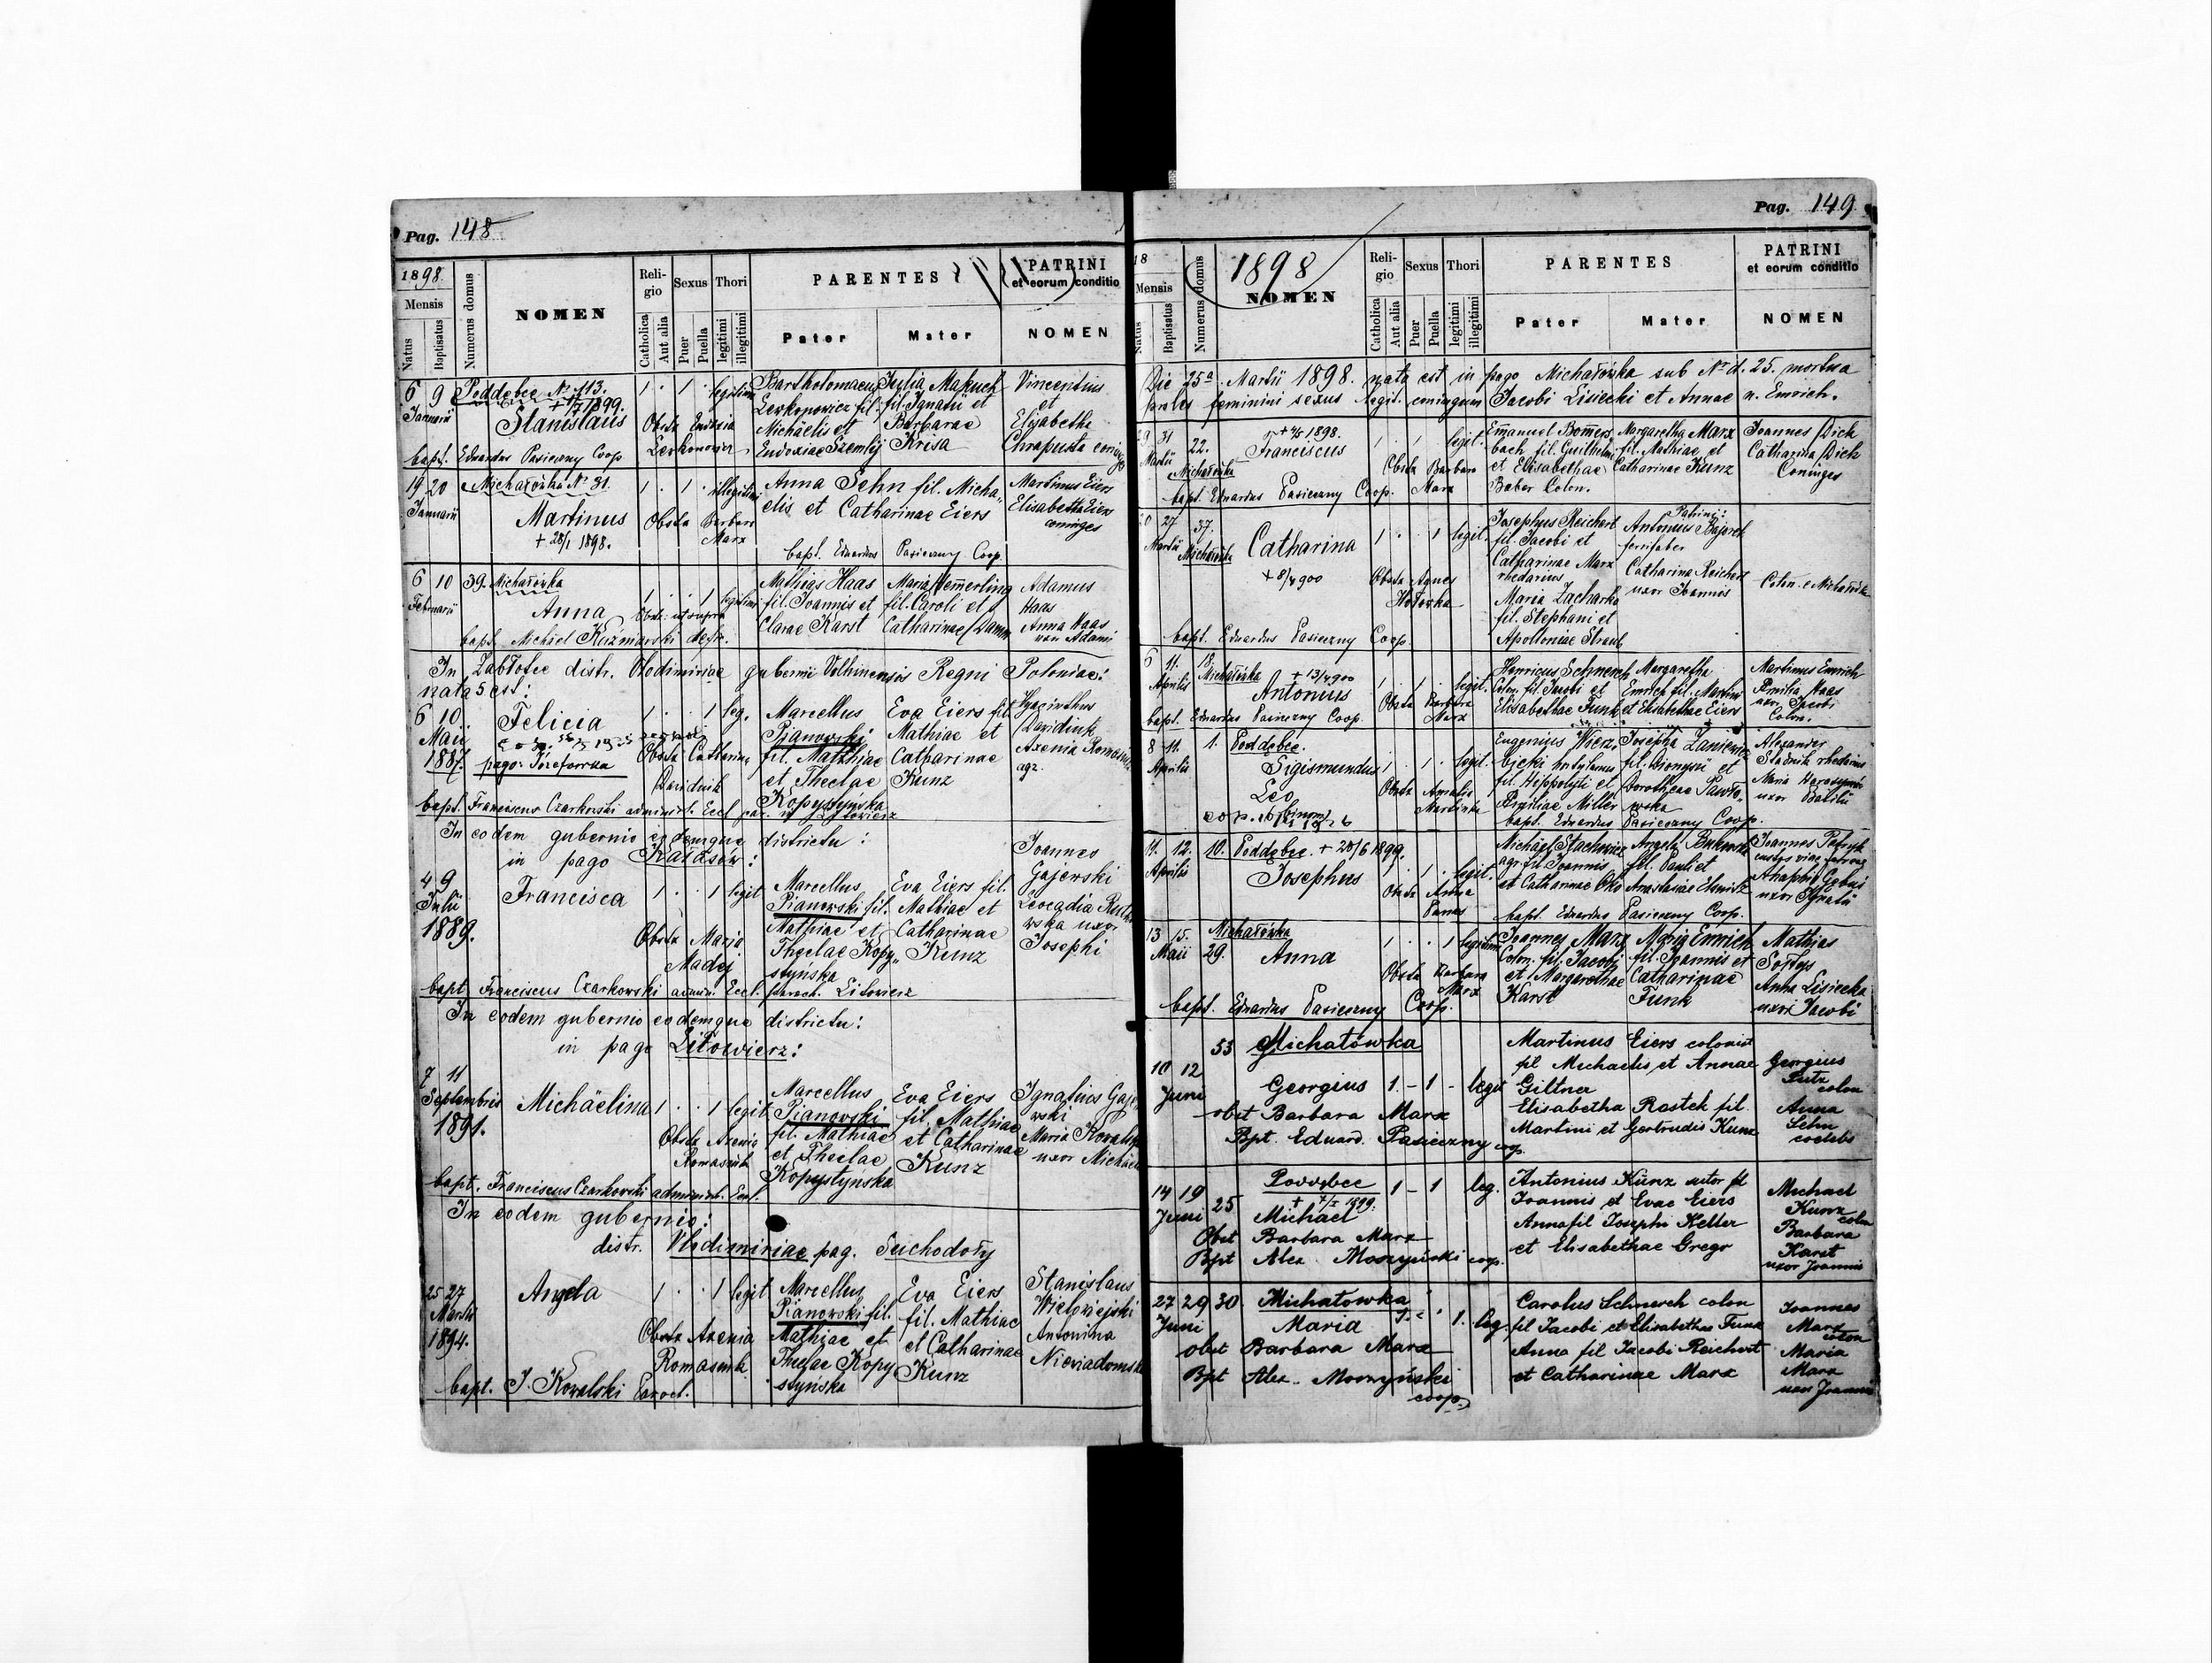 Pag. 148
1898
Mensis
Natus
Baptisatus
Numerus domus
NOMEN
Religio
Catholica
Aut alia
Sexus
Puer
Puella
Thori
legitimi
illegitimi
PARENTES
Pater
Mater
PATRINI
et eorum conditio
NOMEN
6 9 Poddębce № 113.
Januarii
Stanislaus
1 . 1 . legitimi
Bartholomaeus
Lewkonowicz fil.
Michaelis et
Eudoxiae Szemlij
Julia Makuch
fil. Ignatii et
Barbarae
Krisa
Vincentius
et
Elisabetha
Chrapusta coniuges
Obstx Eudoxia
Lewkonowicz
bapt. Eduardus Pasieczny Coop
19 20 Michałówka № 31.
Januarii
Martinus
+ 28/1 1898.
1 . 1 . illegitimi
Obstx Barbara
Marx
Anna Sehn fil. Micha„
elis et Catharinae Eiers
Martinus Eiers
Elisabetha Eiers
coniuges
bapt. Eduardus Pasieczny Coop
6 10 39. Michałówka
Februarii
Anna
1 . . 1 legitimi
Obstx: ut supra
Mathias Haas
fil. Joannis et
Clarae Karst
Maria Hemerling
fil. Caroli et
Catharinae Damm
Adamus
Haas
Anna Haas
uxor Adami
bapt. Michael Kuzmarski
In Zabłotce distr. Wlodimiriae gubernii Volhinensis Regni Poloniae:
nata est:
6 10.
Maii
1887.
Felicia
pago: Józefowka
1 . . 1 leg.
Obstx Catharina
Davidiuk
Marcellus
Pianowski
fil. Mathiae
et Theclae
Kopystyńska
Eva Eiers fil.
Mathiae et
Catharinae
Kunz
Hyacinthus
Davidiuk
Axenia Romasiuk
agr.
bapt. Franciscus Czarkowski administ. Eccl. par. in Litowierz
In eodem gubernio eodemque districtu:
in pago Kałasów:
4 9
Julii
1889.
Francisca
1 . . 1 legit
Obstx Maria
Madej
Marcellus
Pianowski fil.
Mathiae et
Theclae Kopy„
styńska
Eva Eiers fil.
Mathiae et
Catharinae
Kunz
Joannes
Gajewski
Leocadia Rutko
wska uxor
Josephi
bapt. Franciscus Czarkowski admin. Eccl. paroch. Litowierz
In eodem gubernio eodemque districtu:
in pago Litowierz:
7 11
Septembris
1891.
Michäelina
1 . . 1 legit
Obstx Axenia
Romasiuk
Marcellus
Pianowski
fil. Mathiae
et Theclae
Kopystyńska
Eva Eiers
fil. Mathiae
et Catharinae
Kunz
Ignatius Gaje
wski
Maria
uxor Michäelis
bapt. Franciscus Czarkowski administ. Eccl.
In eodem gubernio:
distr. Vlodimiriae pag. Suchodoły
25 27
Martii
1894.
Angela
1 . . 1 legit
Obstx Axenia
Romasiuk
Marcellus
Pianowski fil.
Mathiae et
Theclae Kopy
styńska
Eva Eiers
fil. Mathiae
et Catharinae
Kunz
Stanislaus
Wielowiejski
Antonina
Niewiadomska
bapt. J. Kowalski Paroch.
Pag. 149
18
1898
Mensis
Natus
Baptisatus
Numerus domus
NOMEN
Religio
Catholica
Aut alia
Sexus
Puer
Puella
Thori
legitimi
illegitimi
PARENTES
Pater
Mater
PATRINI
et eorum conditio
NOMEN
Die 25ª Martii 1898. nata est in pago Michałówka sub № d. 25. mortua
proles feminini sexus legit. coniugum Jacobi Lisiecki et Annae n. Emrich.
29 31 22.
Martii Michałówka
Franciscus
1 . 1 . legit.
Obstx Barbara
Marx
Emanuel Bomers
bach fil. Guilhelmi
et Elisabethae
Baber Colon.
Margaretha Marx
fil. Mathiae et
Catharinae Kunz
Joannes Dich
Catharina Dich
Coniuges
bapt. Eduardus Pasieczny Coop.
27 37.
Martii Michałówka
Catharina
+ 8/4 900
1 . . 1 legit.
Obstx Agnes
Josephus Reichert
fil. Jacobi et
Catharinae Marx
rhedarius
Maria Zacharko
fil. Stephani et
Apolloniae Straub
Patrini:
Antonius
ferrifaber
Catharina Reichert
uxor Joannis
Colon. e Michałówka
bapt. Eduardus Pasieczny Coop
6 11. 18.
Aprilis Michałówka + 13/4 900
Antonius
1 . 1 . legit.
Obstx Barbara
Marx
Henricus Schnerch
Colon. fil. Jacobi et
Elisabethae Funk
Margaretha
Emrich fil. Martini
et Elisabethae Eiers
Martinus Emrich
Emilia Haas
uxor Jacobi
Colon.
bapt. Eduardus Pasieczny Coop.
8 11. 1. Poddębce.
Aprilis
Sigismundus
Leo
(binom)
1 . 1 . legit.
Obstx Amalia
Eugenius Wierz„
bicki
fil. Hippolyti et
Emiliae Miller
Josepha
fil. Dionysii et
Dorotheae Pawło„
wska
Alexander
Stadnik rhedarius
Maria
uxor Basilii
bapt. Eduardus Pasieczny Coop.
11. 12. 10. Poddębce. + 28/6 1899.
Aprilis
Josephus
1 . 1 . legit.
Obstx Anna
Michäel Stachowicz
agr. fil. Joannis
et Catharinae
Angela
fil. Pauli et
Anastasiae
Joannes
custos viae ferreae
uxor Ignatii
bapt. Eduardus Pasieczny Coop.
13 15. Michałówka
Maii 29.
Anna
1 . . 1 legitimi
Obstx Barbara
Marx
Joannes Marx
Colon. fil. Jacobi
et Margarethae
Karst
Maria Emrich
fil. Joannis et
Catharinae
Funk
Mathias
Soltys
Anna Lisiecka
uxor Jacobi
bapt. Eduardus Pasieczny Coop.
53 Michałówka
10 12
Juni
Georgius 1. – 1 – legit
obst Barbara Marx
Bpt. Eduard. Pasieczny cop.
Martinus Eiers colonist
fil Michaelis et Annae
Giltner
Elisabetha Rostek fil.
Martini et Gertrudis Kunz
Georgius
colon
Anna
Sehn
coelebs
14 19 25
Juni
Poddębce
Michael
1 – 1 leg.
Obst Barbara Marx
Bpt Alex Moszyński cop.
Antonius Kunz sutor fil
Joannis et Evae Eiers
Anna fil Josephi Keller
et Elisabethae Gregor
Michael
Kunz
colon
Barbara
Karst
uxor Joannis
27 29 30 Michałowka
Juni
Maria 1. 1. leg.
obst Barbara Marx
Bpt Alex. Moszyński
coop.
Carolus Schnerch colon
fil Jacobi et Elisabethae Funk
Anna fil Jacobi Reichert
et Catharinae Marx
Joannes
Marx
colon
Maria
Marx
uxor Joannis